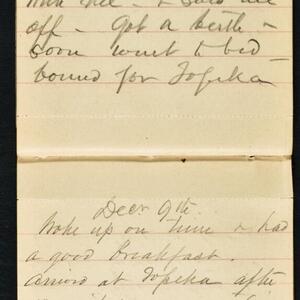 with me - & said me
off - Got a berth -
soon went to bed
bound for Topeka
Decr 9th
Woke up on time & had
a good breakfast.
arrived at Topeka after